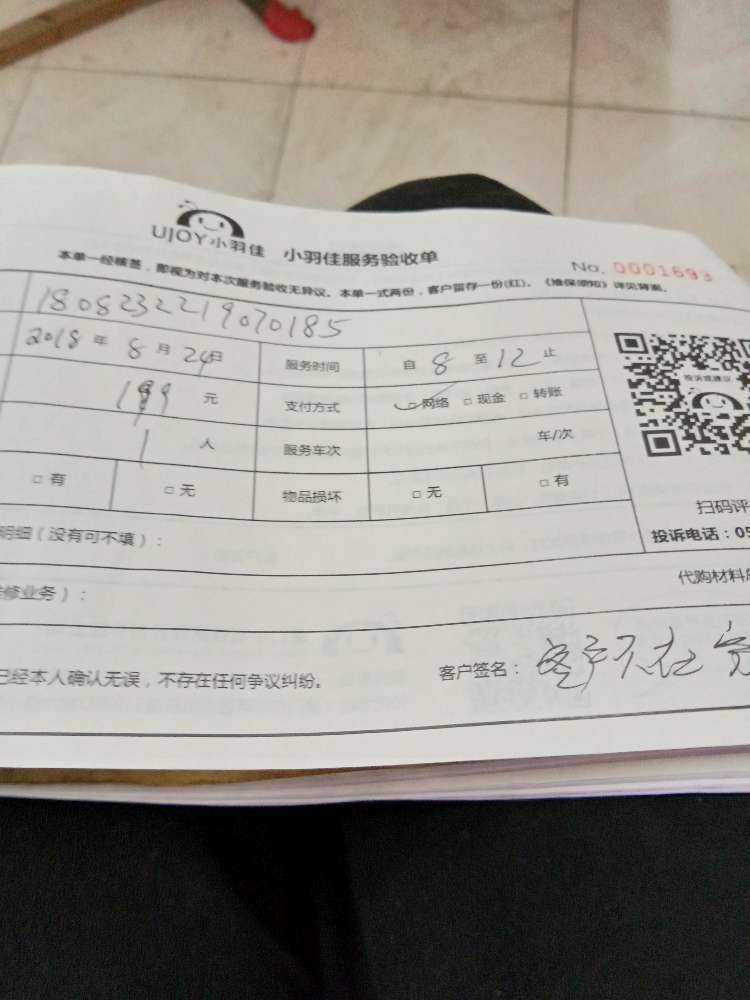 UJOY小羽佳 小羽佳服务验收单
No. 0001693
本单一经核签，即视为对本次服务验收无异议。本单一式两份，客户留存一份(红)。《维保须知》详见背面。
1808232219070185
2018 年 8 月 24日 服务时间 自 8 至 12 止
199 元 支付方式 □网络 □现金 □转账
1 人 服务车次 车/次
□有 □无 物品损坏 □无 □有
投诉或建议
扫码评
明细（没有可不填）：
投诉电话：05
代购材料
修业务）：
已经本人确认无误，不存在任何争议纠纷。 客户签名：客户不在